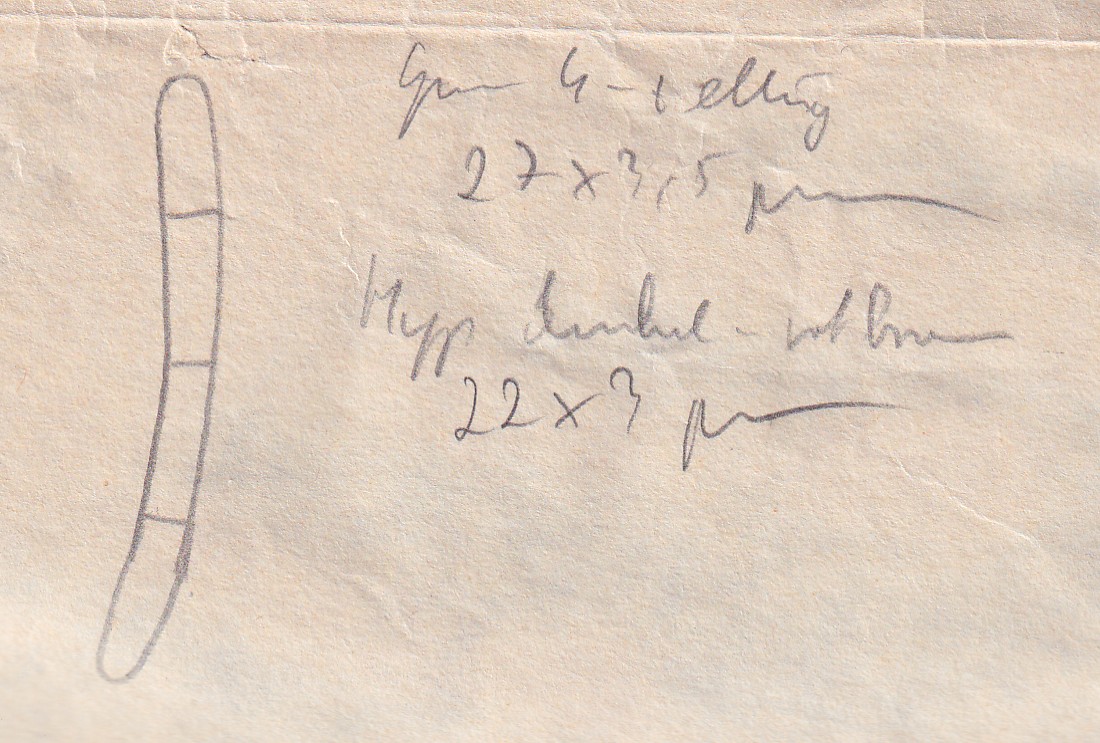 Spor 4-zellig
27 x 3,5 µm
Hyp dunkel-rotbraun
22 x 3 µm